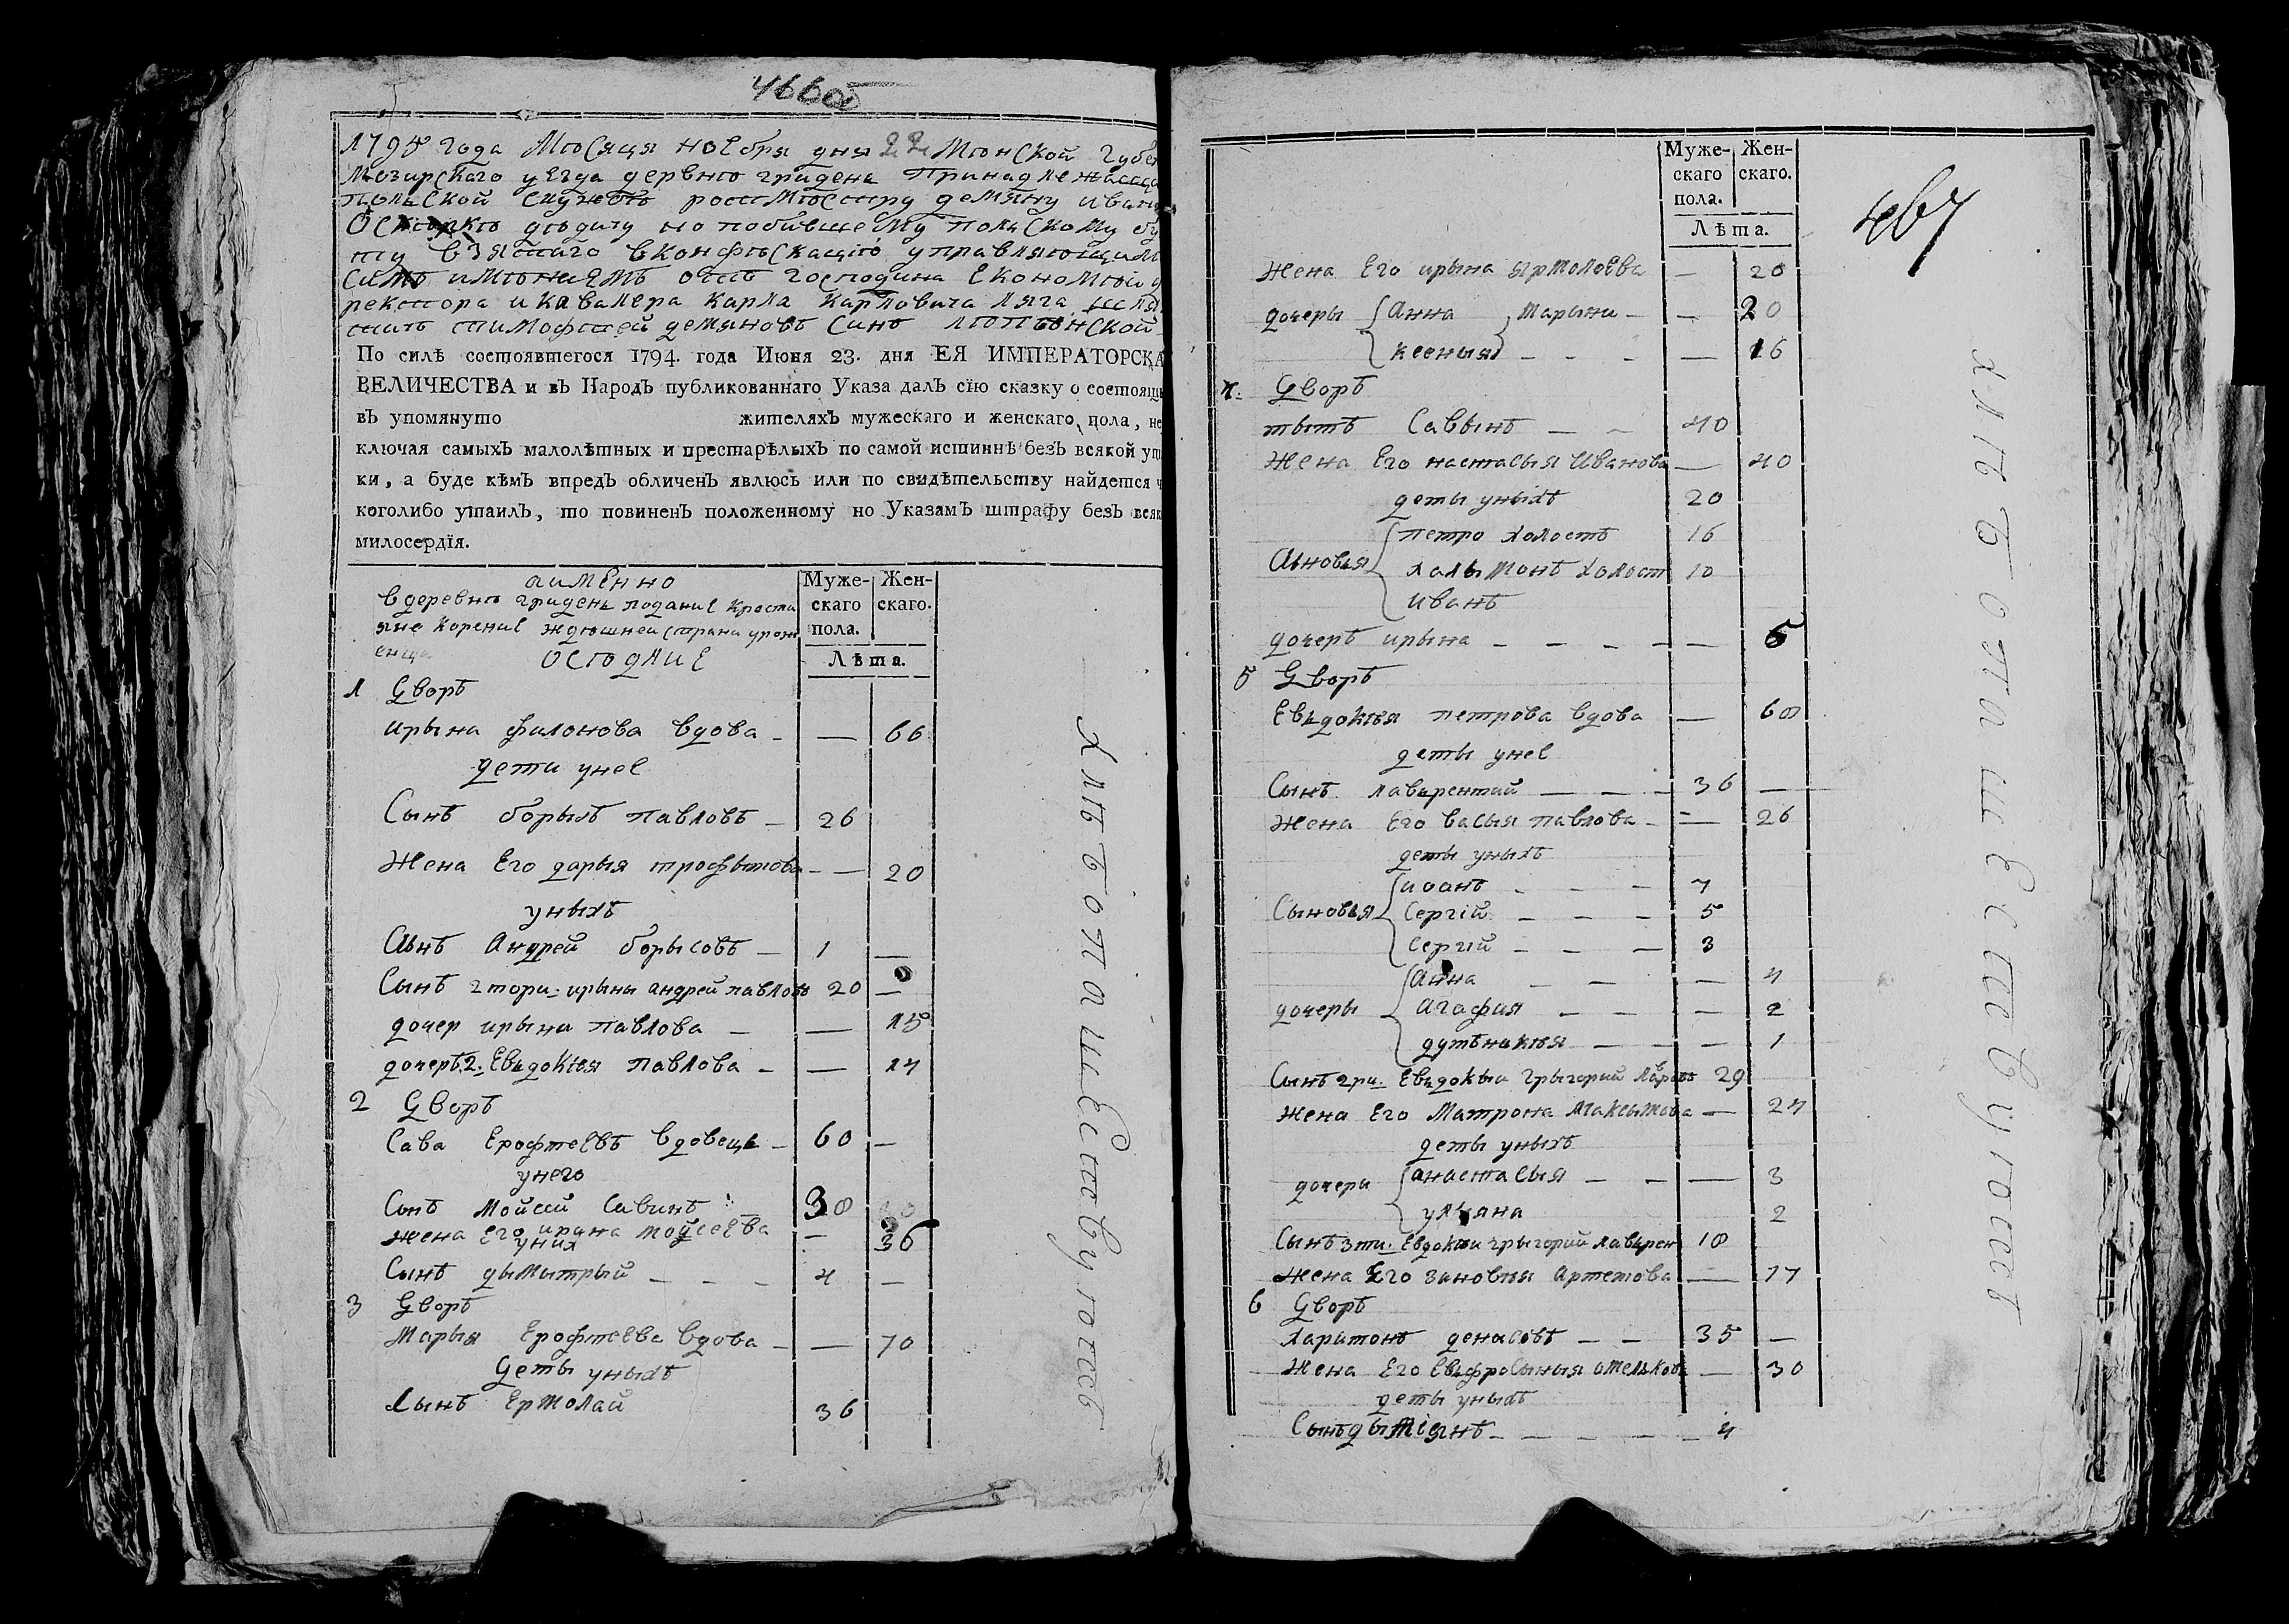 466об
1795 года Мюсяця ноебря дня 22 Мюнской губе
Мозирскаго уезда деревню гридень принадлежасща
польской службъ ротмюстру демяну иван
Оскюркю дюдичу но побившему польскому бу
ту взятаго вконфюскацию управляющим
симъ имюниемъ отъ господина Економюи д
ректора и кавалера карла карловича ляга шля
тить тимофтей демяновъ синъ люпюнской
По силѣ состоявшегося 1794. года Июня 23. дня ЕЯ ИМПЕРАТОРСКА
ВЕЛИЧЕСТВА и вЪ НародЪ публикованнаго Указа далЪ сїю сказку о состоящ
вЪ упомянуто жителяхЪ мужескаго и женскаго пола, не
ключая самыхЪ малолѣтных и престарѣлыхЪ по самой истиннѣ безЪ всякой ут
ки, а буде кѣмЪ впредЪ обличенЪ явлюсь или по свидѣтельству найдется ч
коголибо утаилЪ, то повиненЪ положенному но УказамЪ штрафу безЪ всяк
милосердїя.
аимЕнно
вдеревню гридень подание крости
яне корение ждюшнеи страни урож
енци
осюдлие
Муже- Жен-
скаго скаго.
пола.
Лѣта.
1 Дворъ
ирына филонова вдова — — 66
дети унее
Сынъ борысъ павловъ — 26
Жена Его дарья трофымова — — 20
уныхъ
Сынъ Андрей борысовъ — 1 —
Сынъ 2 тори: ирыны андрей павловъ 20 —
дочер ирына павлова — — 15
дочеръ 2. Евьдокюя павлова — — 14
2 Дворъ
Сава Ерофтеевъ вдовець — 60 —
унего
Сынъ Мойсей Савинъ 30
жена Его ирина мойсеева — 36
уних
Сынъ дымытрый — — — 4 —
3 Дворъ
Марья Ерофтеева вдова — — 70
Деты уныхъ
Сынъ Ермолай 36
Хлюбопашество вуюссъ
467
Муже- Жен-
скаго скаго.
пола.
Лѣта.
Жена Его ирына ярмолоева — 20
дочеры Анна Марыни — — 20
ксеныя — — — — 16
4. Дворъ
тытъ Саввынъ — — 40
Жена Его настасья иванова — 40
деты уныхъ 20
Сыновья петро холостъ 16
халымонъ холост 10
иванъ
дочеръ ирына — — — — — 5
5 Дворъ
Евьдокюя петрова вдова — 60
деты унее
Сынъ лаврентий — — — 36 —
жена Его васыя павлова — — 26
деты уныхъ
Сыновья иоанъ — — — 7
Сергій — — — 5
Сергій — — — 3
дочеры Анна — — — 4
Агафия — — — 2
дутьнакюя — — — 1
Сынъ 2ри. Евьдокьи грыгорий Лавровъ 29
жена Его Матрона Максымова — 24
деты уныхъ
дочери анастасыя — — — 3
ульяна 2
Сынъ 3ти. Евдокюи грыгорий лаверен 18
жена Его зиновюя Артемова — 17
6 Дворъ
харитонъ денисовъ — — 35 —
Жена Его Евьфросыныя омелькова — 30
деты уныхъ
Сынъ дымиянъ — — — — — 4
хлюбопашество вуюссъ